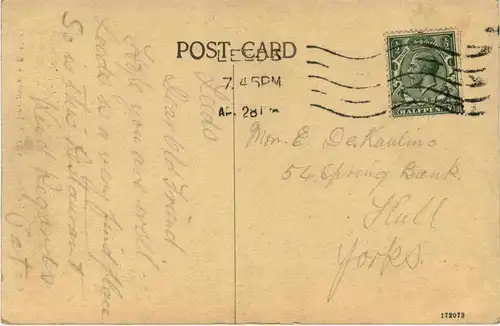 POST CARD
LEEDS
7.45PM
AP 28
HALFPENNY
Leeds
Dear Old Friend
Hope you are well.
Leeds is a very fine place
So is this Restaurant
Kind Regards
Mon. E. DeKaulino.
54 Spring Bank.
Hull
Yorks.
172072